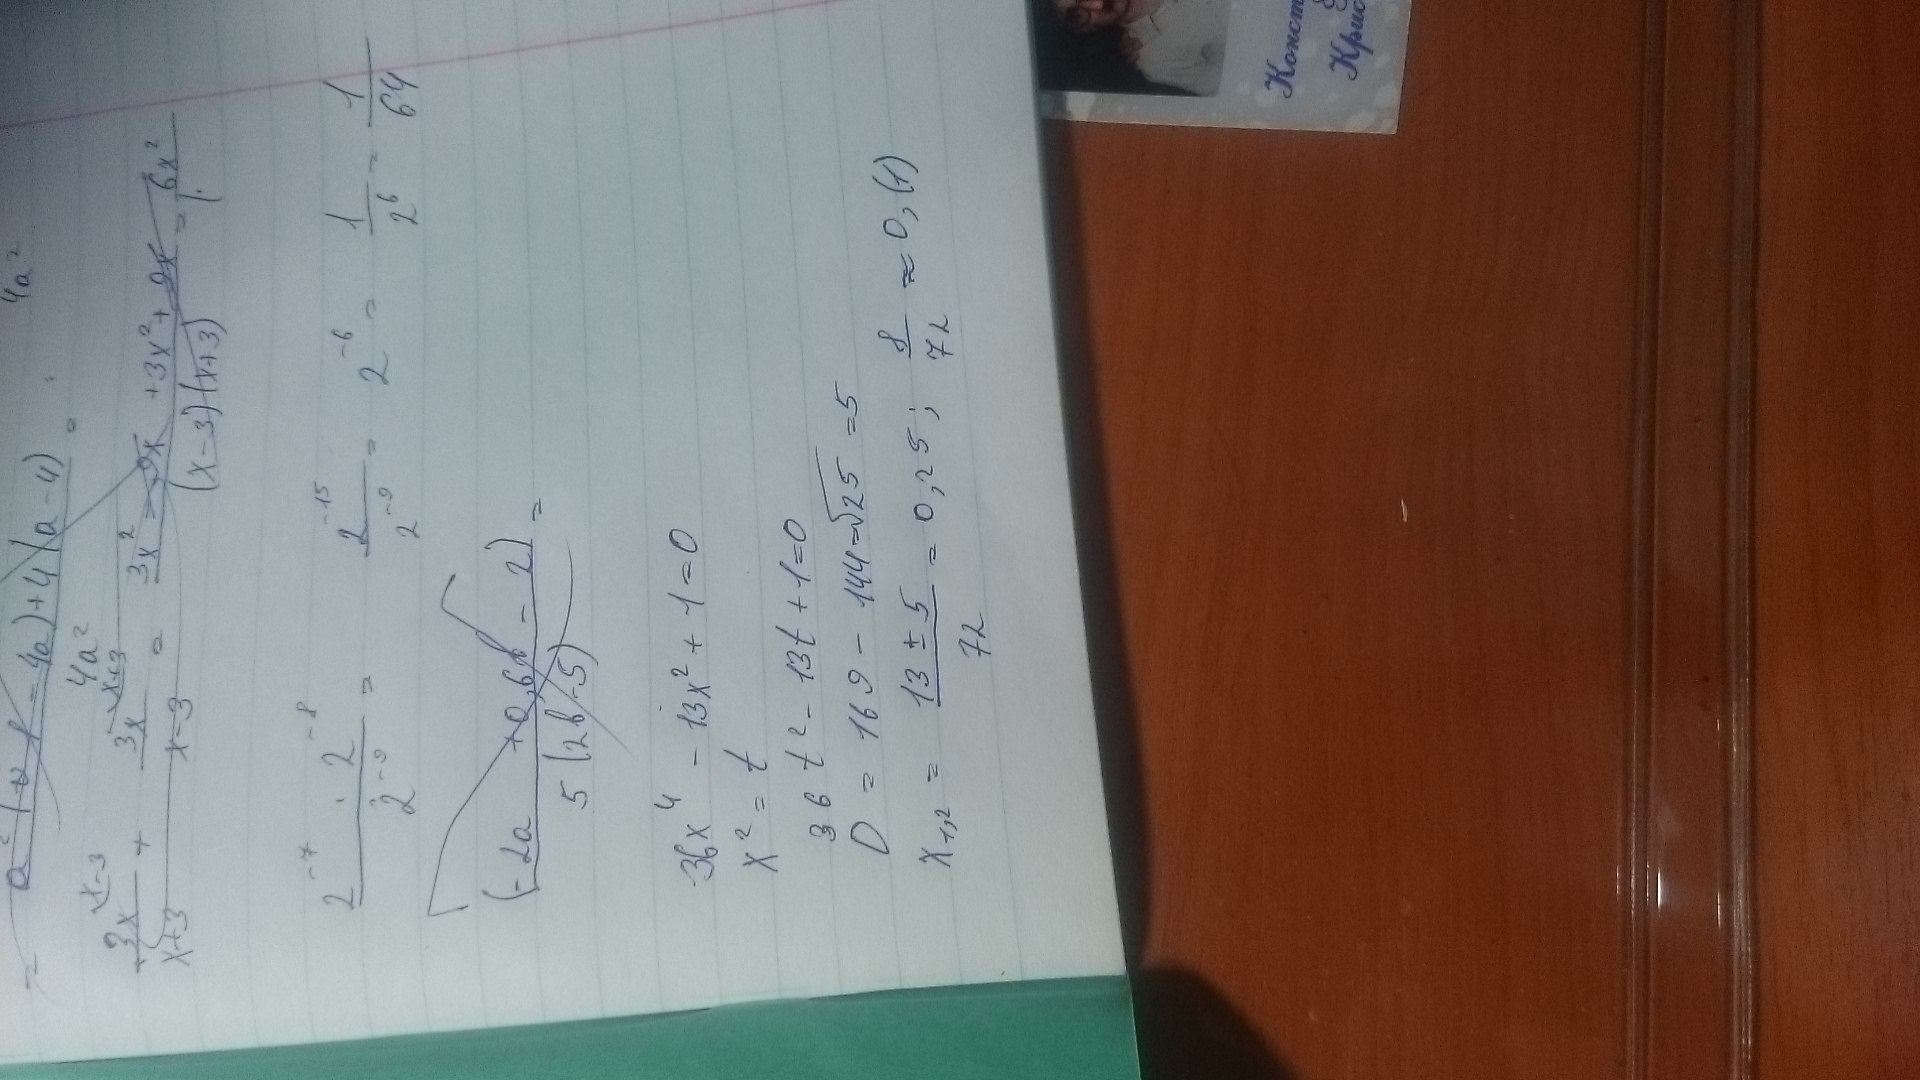 4a²
= + 4(a - 4) =
4a²
3x/x+3 + 3x/x-3 = 3x² - 9x + 3x² + 9x/(x-3)(x+3) = 6x²
2⁻⁷ · 2⁻⁸/2⁻⁹ = 2⁻¹⁵/2⁻⁹ = 2⁻⁶ = 1/2⁶ = 1/64
(-2a + 0,6b - 2)/5(2b-5) =
36x⁴ - 13x² + 1 = 0
x² = t
36t² - 13t + 1 = 0
D = 169 - 144 = √25 = 5
x₁,₂ = 13 ± 5/72 = 0,25; 8/72 ≈ 0,(1)
Конст
&
Крис